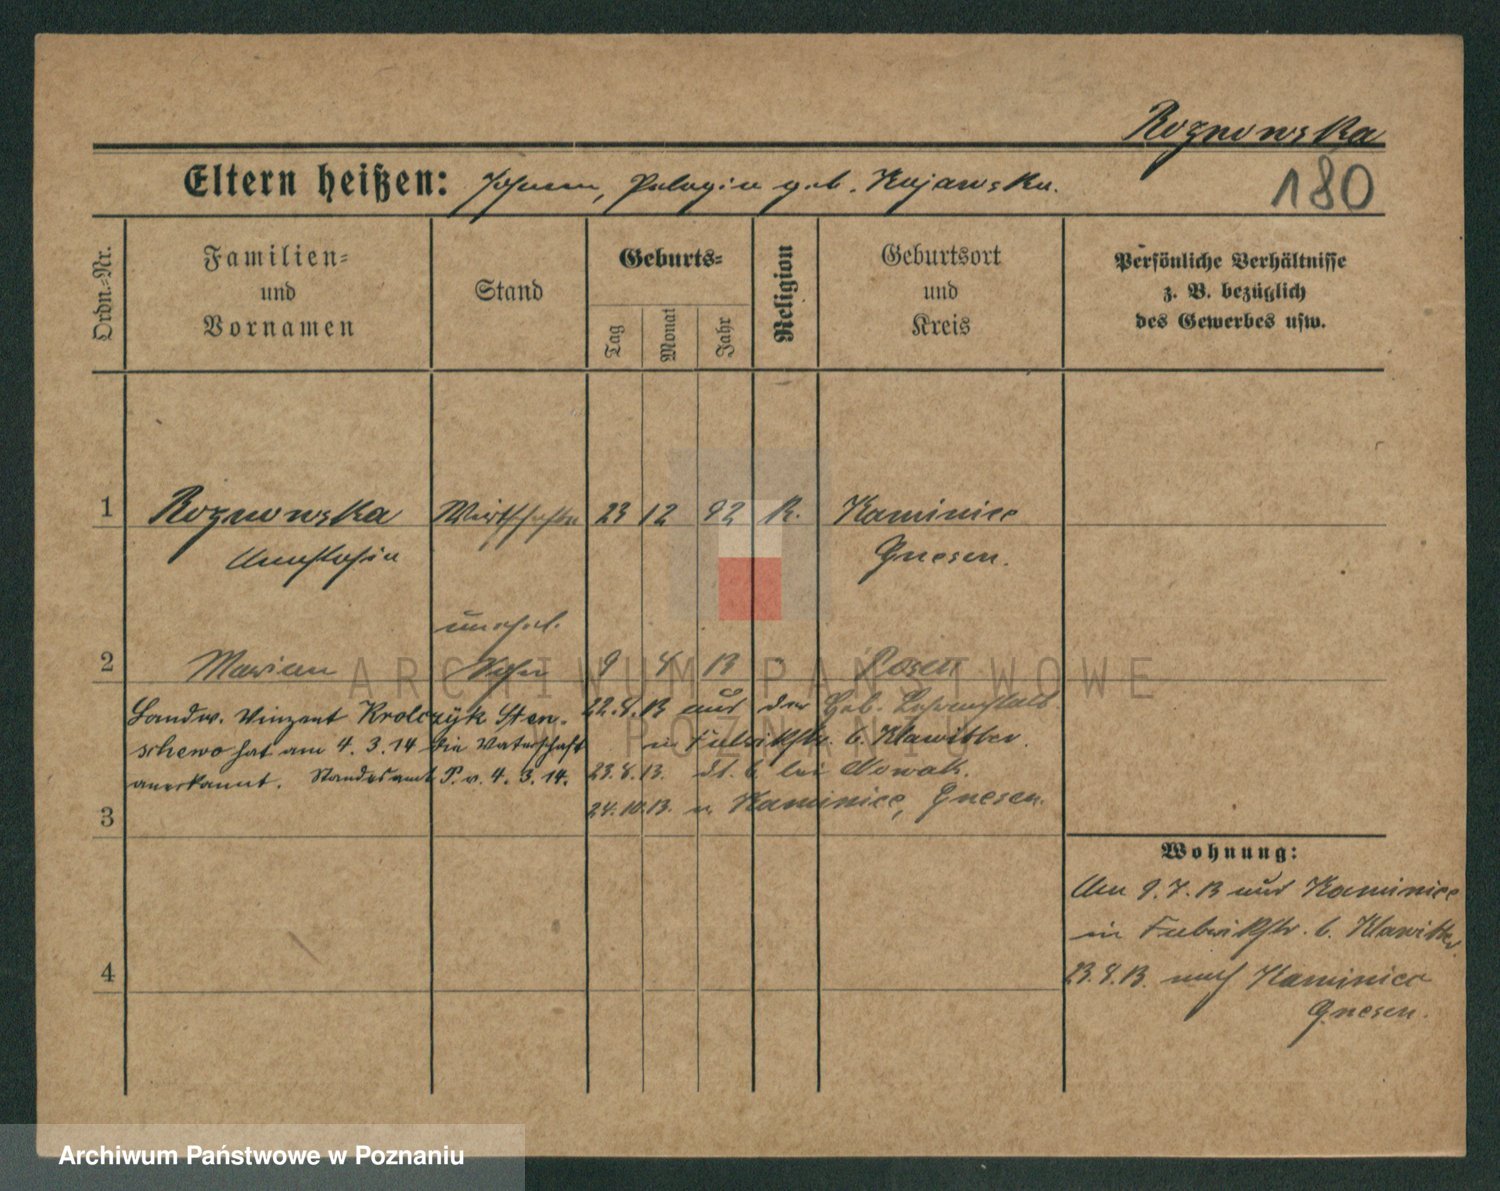 Roznowska
180
Eltern heißen: Johann, Pelagia geb. Kujawska.
Ordn.-Nr.
Familien- und Vornamen
Stand
Geburts-
Tag
Monat
Jahr
Religion
Geburtsort und Kreis
Persönliche Verhältnisse z. B. bezüglich des Gewerbes usw.
1 Roznowska Wirtschafterin 23 12 92 K. Kaminiec
Anastasia Gnesen.
unehel.
2 Marian Sohn 9 8 13 " Posen
Landw. Vinzent Krolczÿk Sten-
schewo hat am 4. 3. 14 die Vaterschaft
anerkannt. Standesamt P. v. 4. 3. 14.
22.8.13 aus der Geb. Lehranstalt
in Fabrikstr. b. Klawitter.
23.8.13. b. bei Nowak.
24.10.13. n. Kaminiec, Gnesen.
3
4
Wohnung:
Am 9.7.13 aus Kaminiec
in Fabrikstr. b. Klawitter
23.8.13. nach Kaminiec
Gnesen.
ARCHIWUM PAŃSTWOWE
W POZNANIU
Archiwum Państwowe w Poznaniu